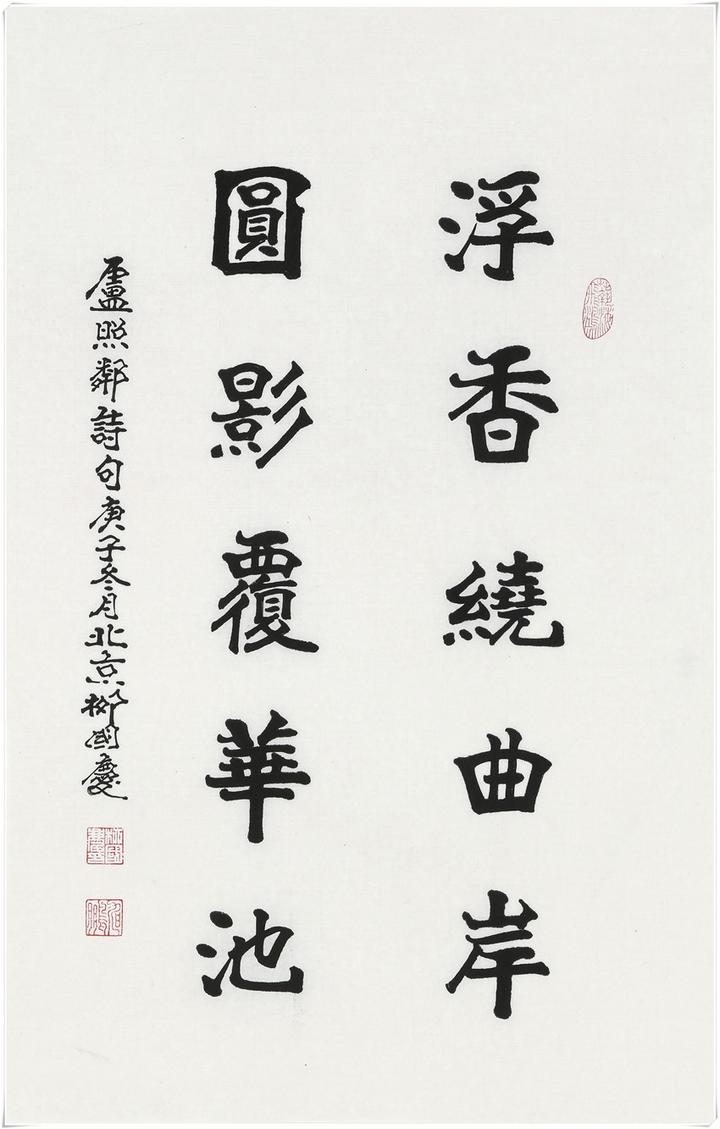 浮香繞曲岸
圓影覆華池
盧照鄰詩句庚子冬月北京柳國慶